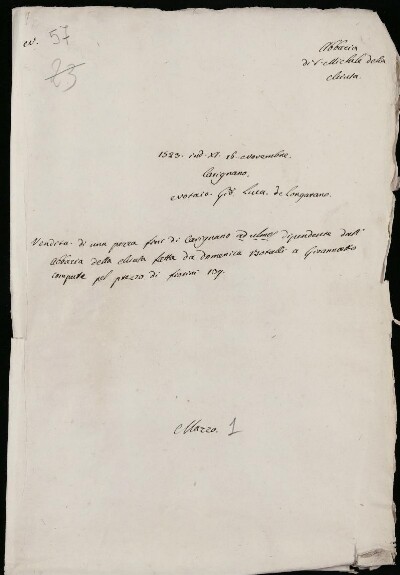 N. 57
23
Abbazia
di S. Michele della
Chiusa.
1523. ind. XI. 16. Novembre.
Carignano.
Notaio. Gio. Luca. de Longarano.
Vendita. di una pezza fini di Carignano ad ulmos dipendente dall'
Abbazia della Chiusa fatta da Domenica Borelli a Gioannetto
compute pel prezzo di fiorini 139.
Mazzo. 1